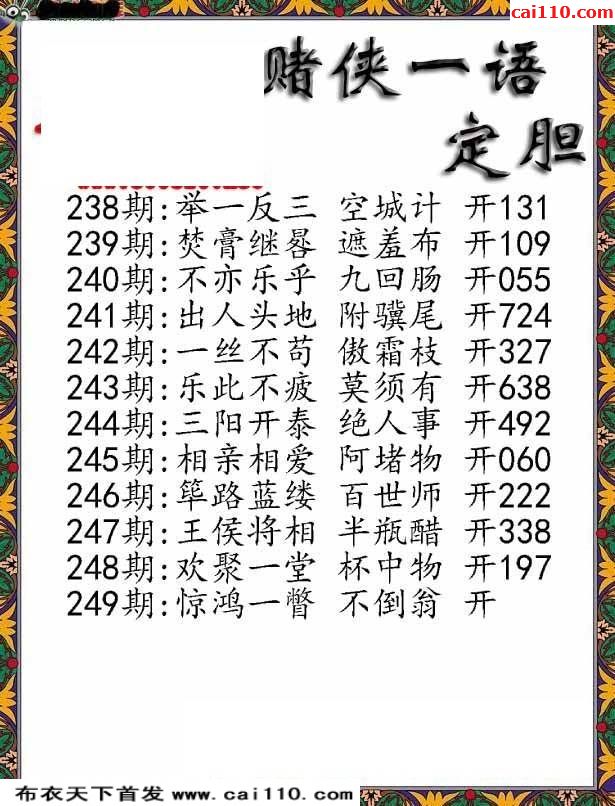 cai110.com
赌侠一语
定胆
238期:举一反三 空城计 开131
239期:焚膏继晷 遮羞布 开109
240期:不亦乐乎 九回肠 开055
241期:出人头地 附骥尾 开724
242期:一丝不苟 傲霜枝 开327
243期:乐此不疲 莫须有 开638
244期:三阳开泰 绝人事 开492
245期:相亲相爱 阿堵物 开060
246期:筚路蓝缕 百世师 开222
247期:王侯将相 半瓶醋 开338
248期:欢聚一堂 杯中物 开197
249期:惊鸿一瞥 不倒翁 开
布衣天下首发 www.cai110.com